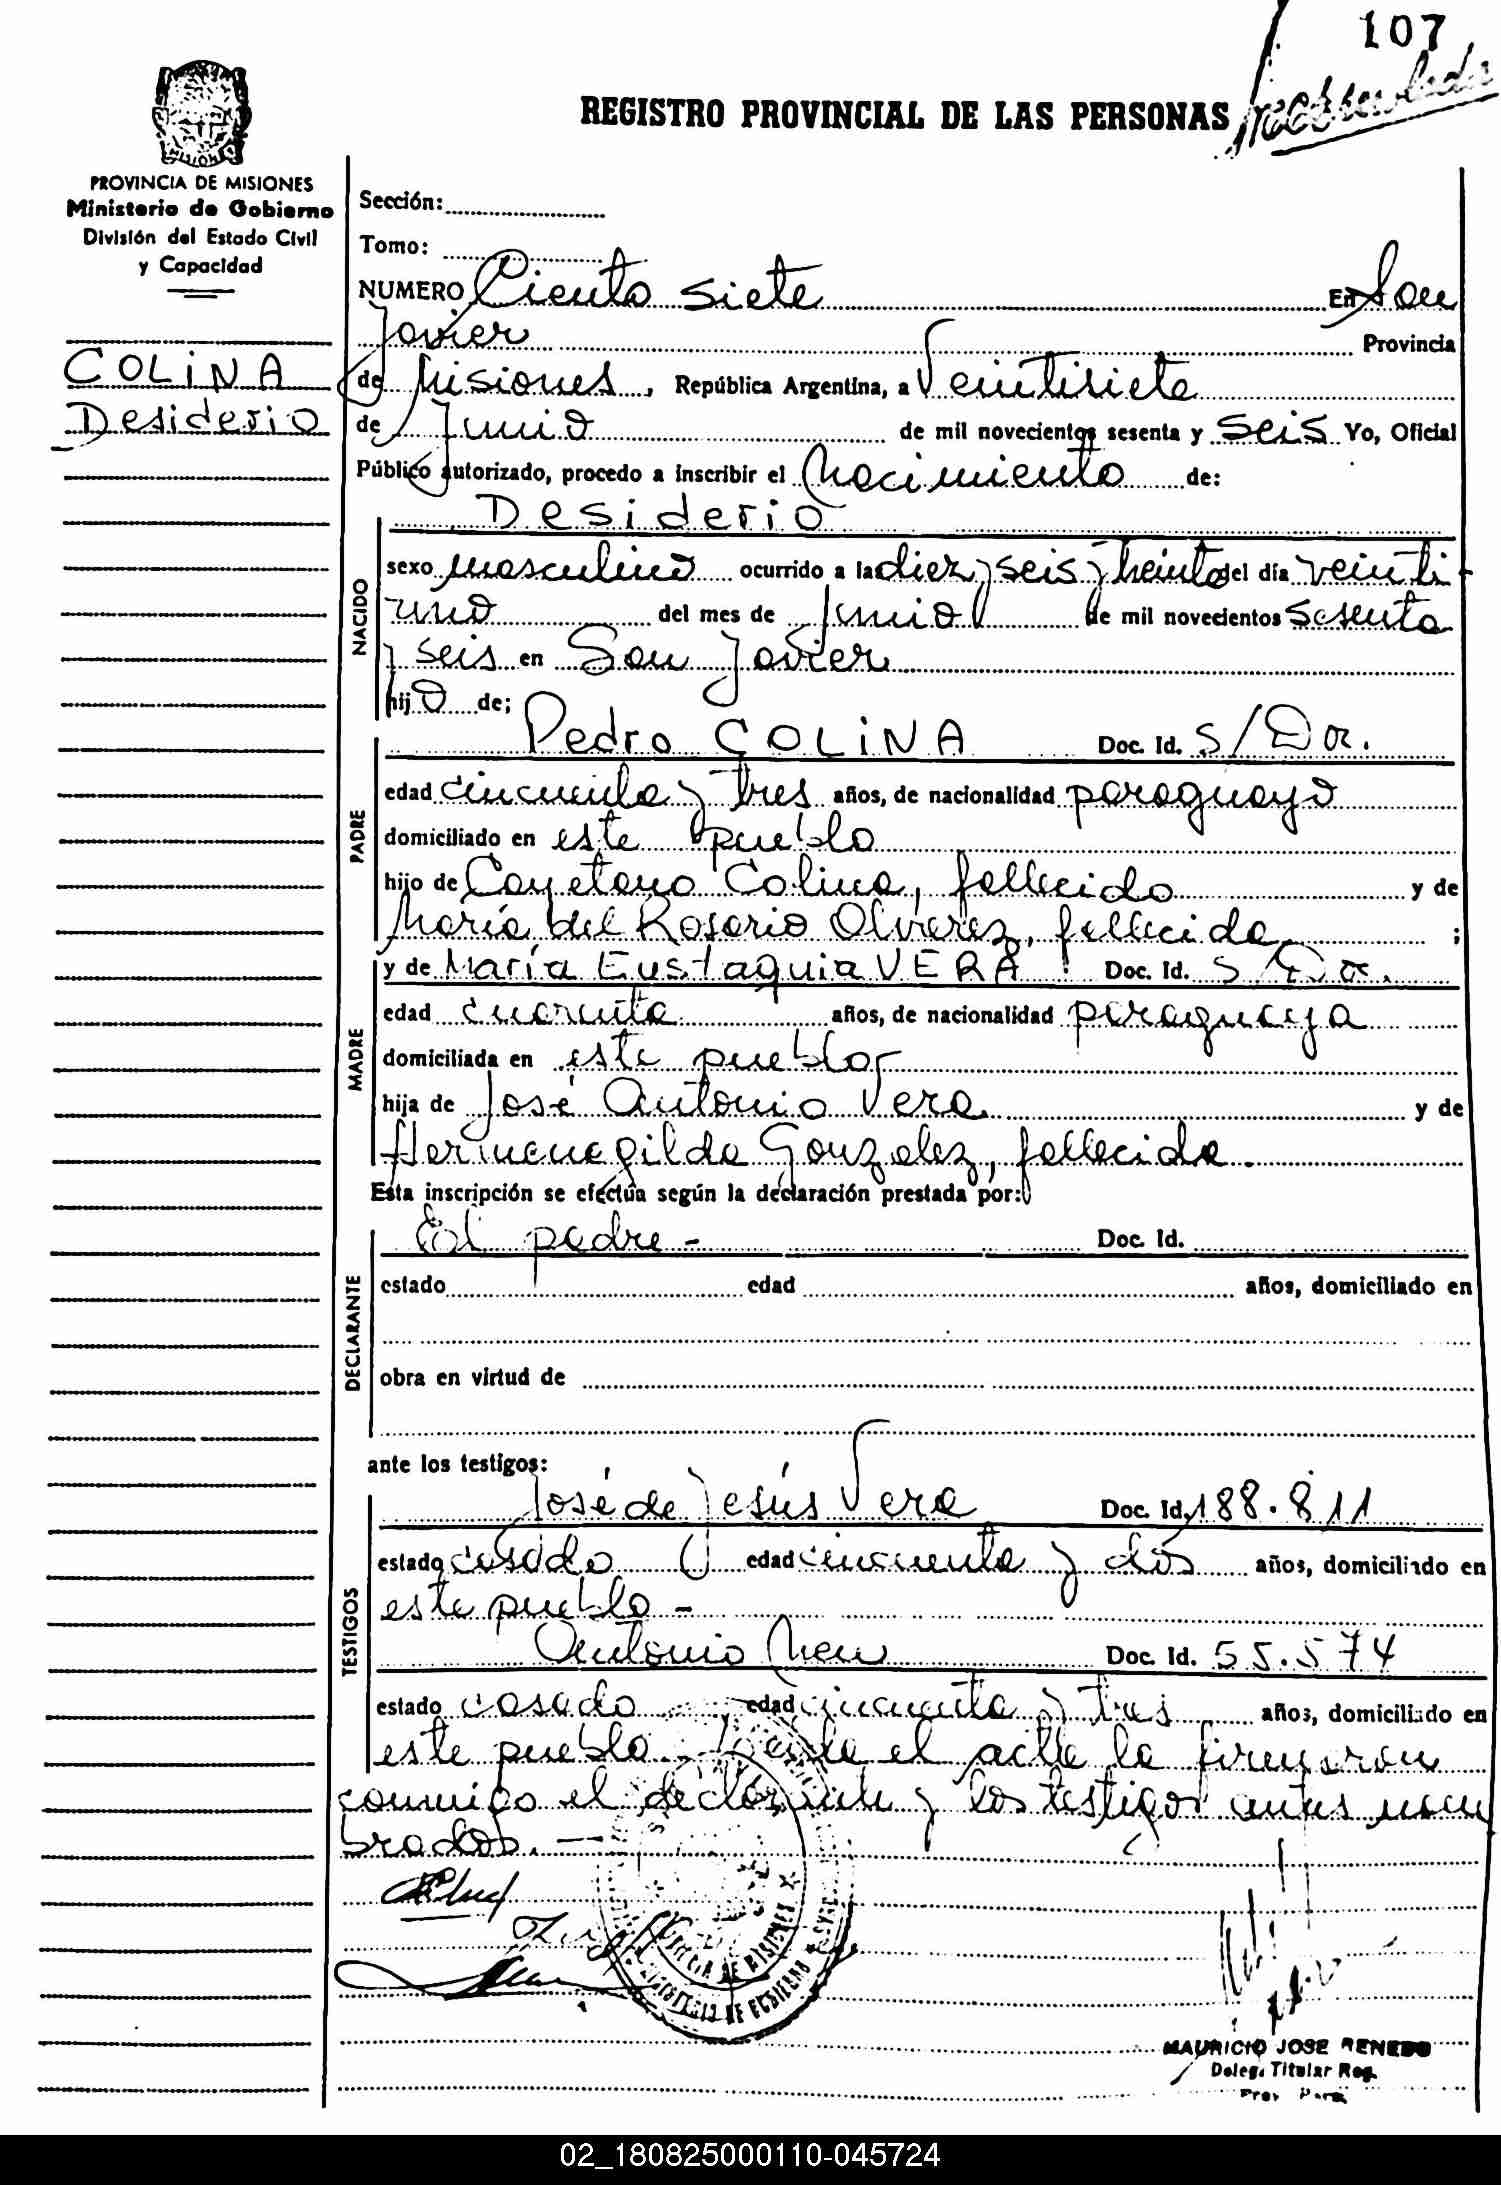 107
REGISTRO PROVINCIAL DE LAS PERSONAS
PROVINCIA DE MISIONES
Ministerio de Gobierno
División del Estado Civil
y Capacidad
COLINA
Desiderio
Sección:
Tomo:
NUMERO Ciento siete En San
Javier Provincia
de Misiones, República Argentina, a Veintisiete
de Junio de mil novecientos sesenta y seis Yo, Oficial
Público autorizado, procedo a inscribir el Nacimiento de:
NACIDO
Desiderio
sexo masculino ocurrido a las diez y seis y treinta del día veinti
uno del mes de Junio de mil novecientos sesenta
y seis en San Javier
hijo de;
PADRE
Pedro COLINA Doc. Id. S/Doc.
edad cincuenta y tres años, de nacionalidad paraguayo
domiciliado en este pueblo
hijo de Cayetano Colina, fallecido y de
María del Rosario Olvarez, fallecida ;
MADRE
y de María Eustaquia VERA Doc. Id. S/Doc.
edad cuarenta años, de nacionalidad paraguaya
domiciliada en este pueblo
hija de José Antonio Vera y de
Hermenegilda Gonzalez, fallecida.
Esta inscripción se efectúa según la declaración prestada por:
DECLARANTE
El padre - Doc. Id.
estado edad años, domiciliado en
obra en virtud de
ante los testigos:
TESTIGOS
José de Jesús Vera Doc. Id. 188.811
estado casado edad cincuenta y dos años, domiciliado en
este pueblo -
Antonio Doc. Id. 55.574
estado casado edad cincuenta y tres años, domiciliado en
este pueblo. el acta la firmaron
conmigo el declarante y los testigos antes nom
brados. -
MAURICIO JOSE RENEDO
Deleg. Titular Reg.
Prov. Pers.
02_180825000110-045724